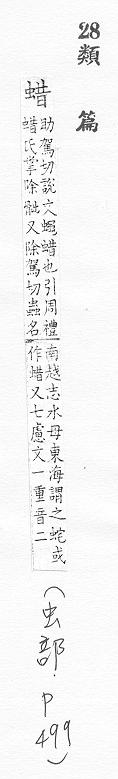 28 類篇
蜡
助駕切說文蠅蜡也引周禮
蜡氏掌除骴又除駕切蟲名
南越志水母東海謂之蛇或
作蜡又七慮文一重音二
（虫部．P499）